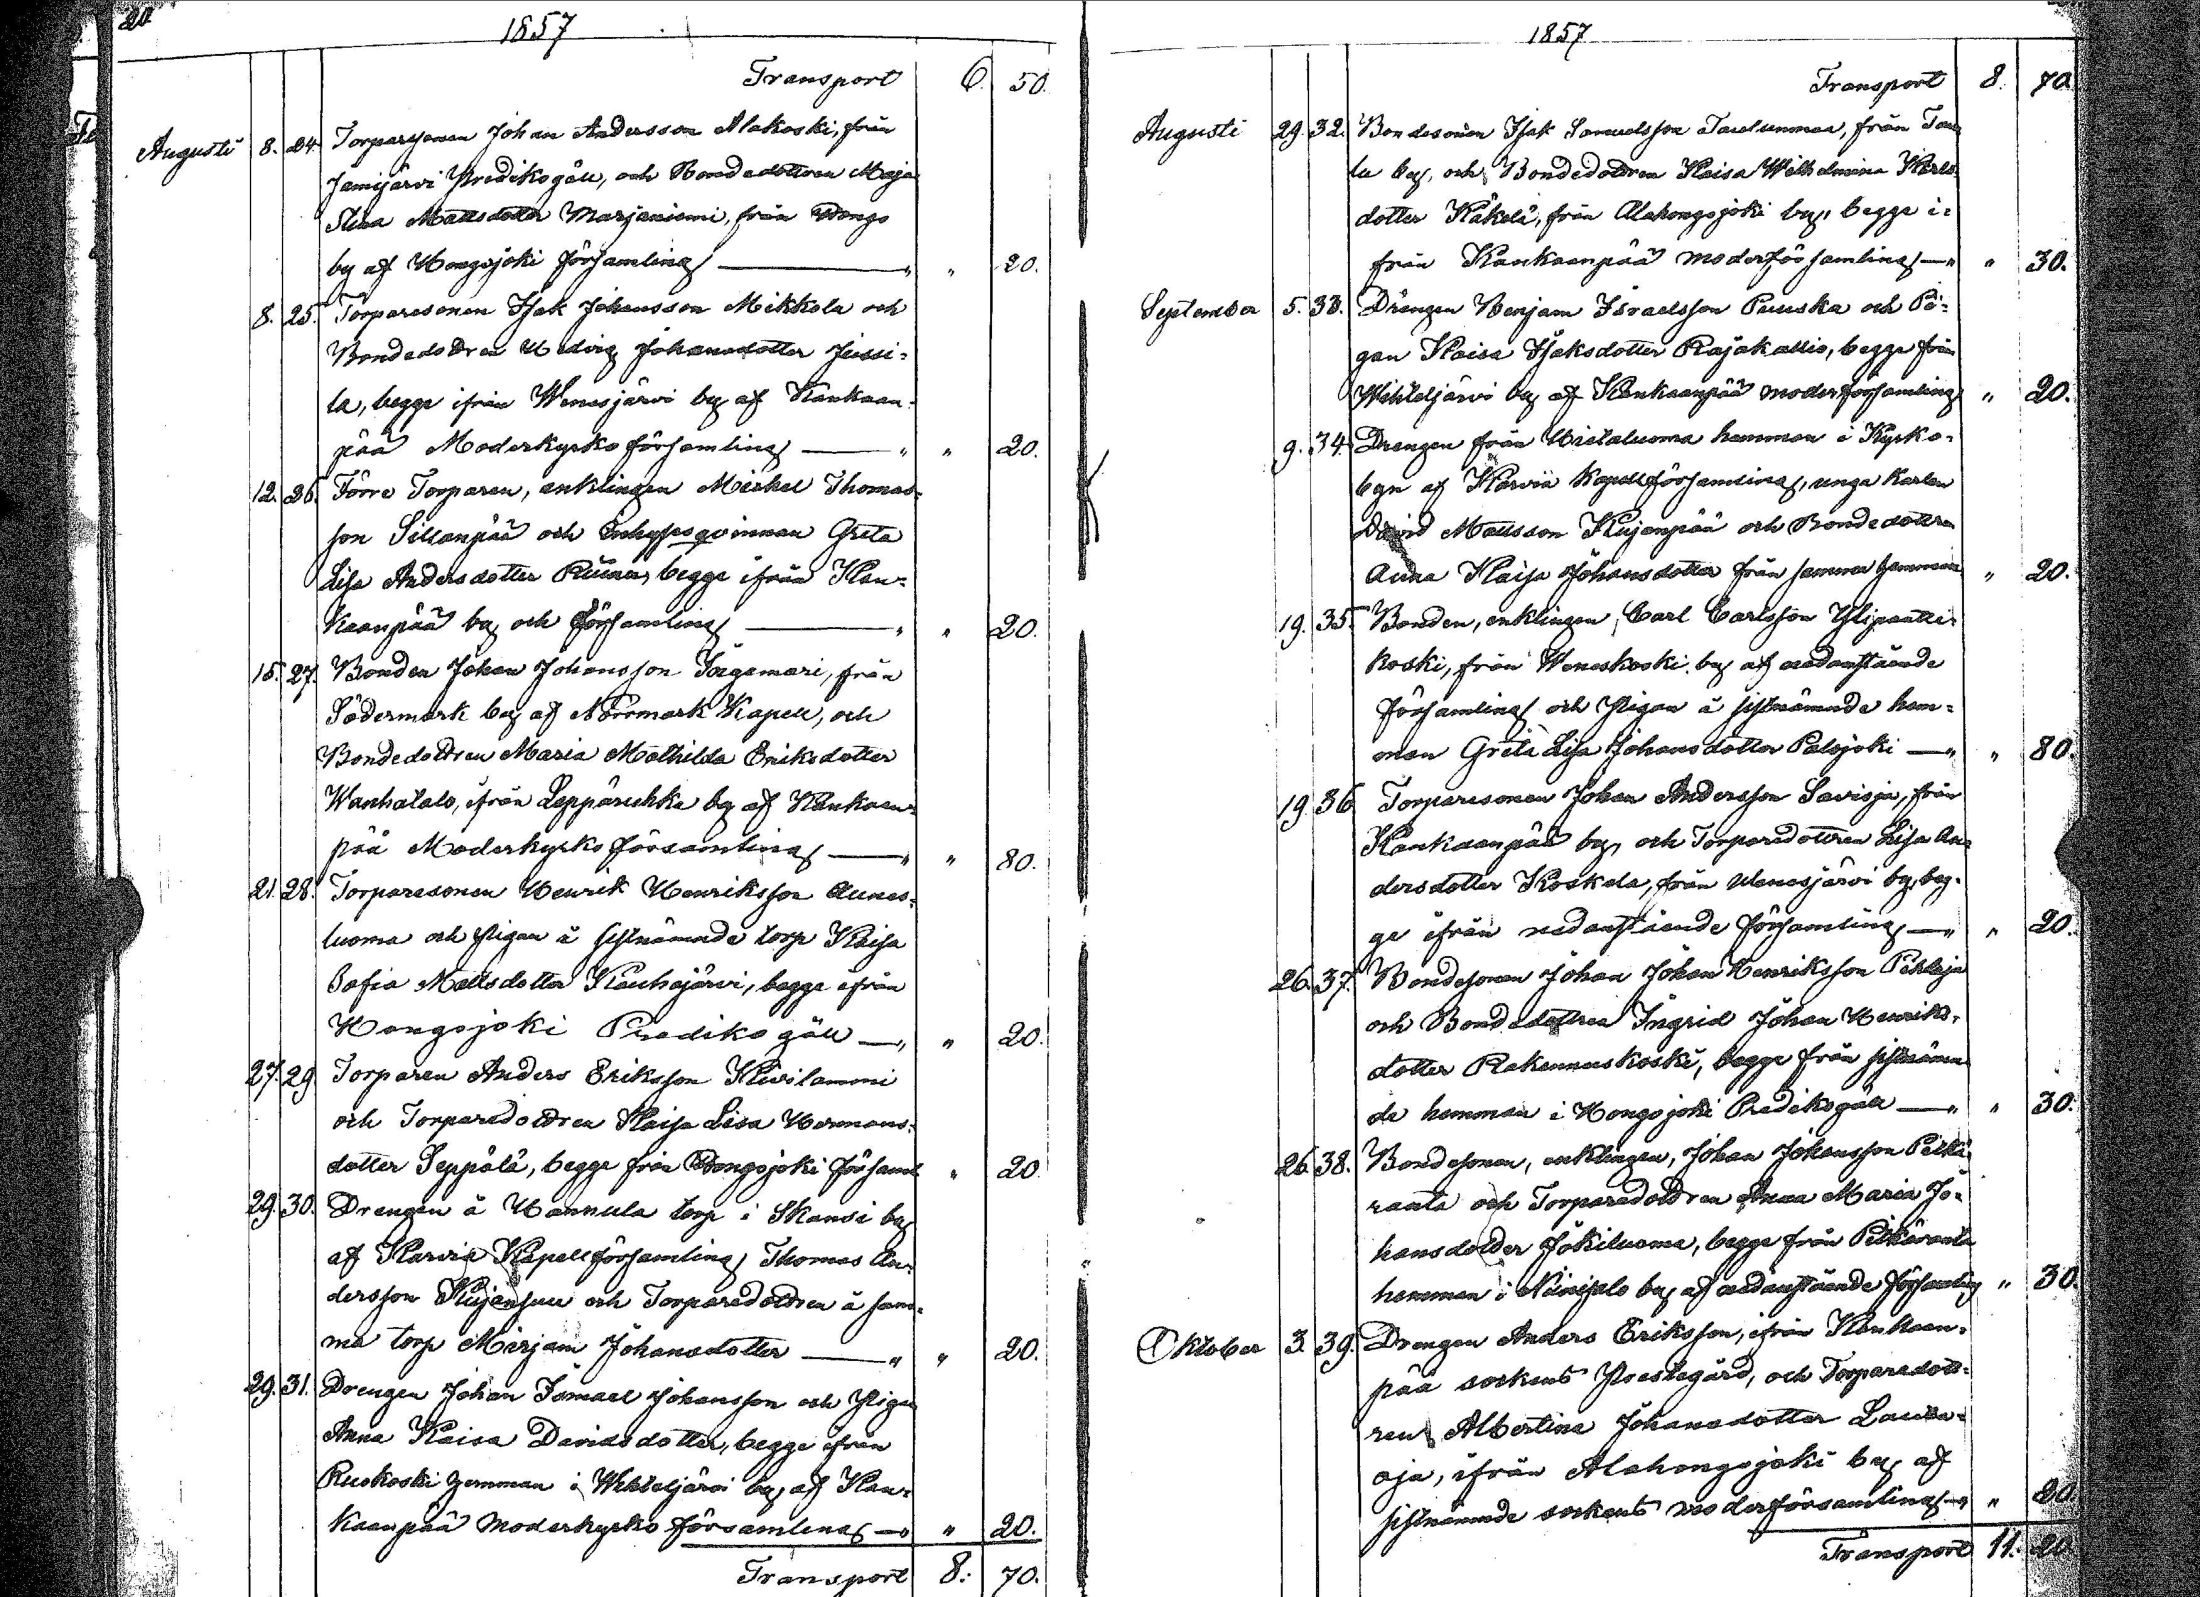 20
1857
Transport 6. 50.
Augusti 8. 24. Torparsonen Johan Andersson Alakoski, från
Jämijärvi Predikogäll, och Bondedottren Maja
Stina Mattsdotter Marjaniemi, från Hongo
by af Hongojoki församling — " " 20.
8. 25. Torparesonen Isak Johansson Mikkola och
Bondedottren Hedvig Johansdotter Jussi-
la, begge ifrån Wenesjärvi by af Kankaan-
pää Moderkyrko församling — " " 20.
12. 26. Förre Torparen, enklingen Mickel Thomas-
son Sillanpää och Inhysesqvinnan Greta
Lisa Andersdotter begge ifrån Kan-
kaanpää by och församling — " " 20.
15. 27. Bonden Johan Johansson Ingamari, från
Södermark by af Norrmark Kapell, och
Bondedottren Maria Mathilda Eriksdotter
Wanhatalo, ifrån Leppäruhka by af Kankaan-
pää Moderkyrko församling — " " 80.
21. 28. Torparesonen Henrik Henriksson Aunes-
luoma och Pigan å sistnämnde torp Kaisa
Sofia Mattsdotter Kauhajärvi, begge ifrån
Hongojoki Predikogäll — " " 20.
27. 29 Torparen Anders Eriksson Kivilammi
och Torparedottren Kaisa Lisa Hermans-
dotter Seppälä, begge från Hongojoki församl " 20
29. 30. Drengen å Hannula torp i Skansi by
af Karvia Kapellförsamling, Thomas An-
dersson Kujansuu och Torparedottren å sam-
ma torp Mirjam Johansdotter — " " 20.
29. 31. Drengen Johan Ismael Johansson och Pigan
Anna Kaisa Davidsdotter, begge ifrån
Ruokoski hemman i Wihteljärvi by, af Kan-
kaanpää moderkyrko församling — " " 20.
Transport 8: 70.
1857
Transport 8. 70.
Augusti 29. 32. Bondesonen Isak Samuelsson Taulunmaa, från Tau
la by, och Bondedottren Kaisa Wilhelmina Karls-
dotter Käkelä, från Alahongojoki by, begge i-
från Kankaanpää moderförsamling — " " 30.
September 5. 33. Drengen Benjam Israelsson Puuska och Pi-
gan Kaisa Isaksdotter Rajakallio, begge från
Wihteljärvi by af Kankaanpää moderförsamling " 20.
9. 34. Drengen från Histaluoma hemman i Kyrko-
byn af Karvia Kapellförsamling, unga karlen
David Mattsson Kujanpää och Bondedottren
Anna Kaisa Johansdotter från samma hemman " 20.
19. 35. Bonden, enklingen Carl Carlsson Ylipaatti-
koski, från Weneskoski by af nedanstående
församling och Pigan å sistnämnde hem-
man Greta Lisa Johansdotter Palojoki — " " 80.
19. 36 Torparesonen Johan Andersson Savioja, från
Kankaanpää by, och Torparedottren Lisa An-
dersdotter Koskela, från Wenesjärvi by, beg-
ge ifrån nedanstående församling — " " 20.
26. 37. Bondesonen Johan Johan Henriksson Pihlaja
och Bondedottren Ingrid Johan Henriks-
dotter Rakennuskoski, begge från sistnämn
de hemman i Hongojoki Predikogäll — " " 30.
26. 38. Bondesonen, enklingen, Johan Johansson Pitkä-
ranta och Torparedottren Anna Maria Jo-
hansdotter Jokiluoma, begge från Pitkäranta
hemman i Niinisalo by, af nedanstående församling " 30.
Oktober 3. 39. Drengen Anders Eriksson, ifrån Kankaan-
pää sockens Prestegård, och Torparedott-
ren Albertina Johansdotter
oja, ifrån Alahongojoki by af
sistnämnde sockens moderförsamling — " " 20.
Transport 11: 20